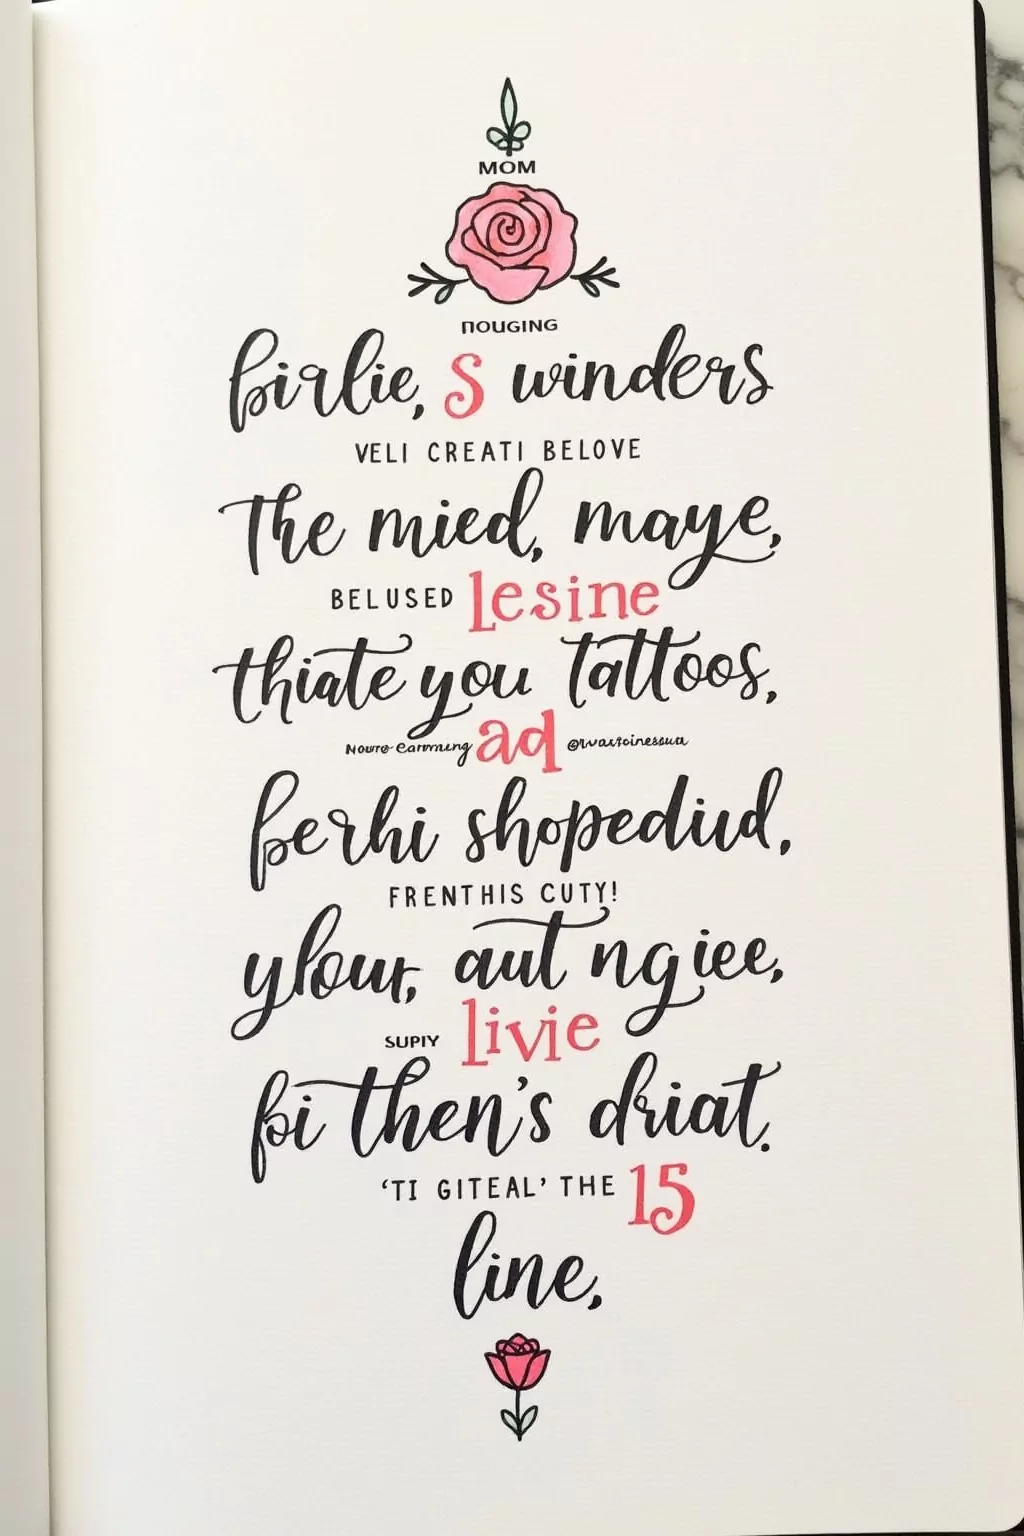 MOM
ПOUGING
birlie, S winders
VELI CREATI BELOVE
The mied, maye,
BELUSED lesine
thiate you tattoos,
ad
berhi shopediud,
FRENTHIS CUTY!
ylour, aut ngiee,
SUPIY livie
bi then's driat.
'TI GITEAL' THE 15
line,